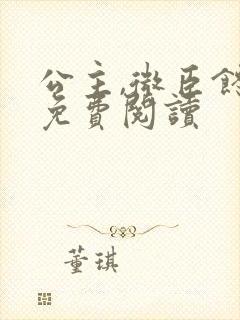 公主,微臣
免費閱讀
董琪